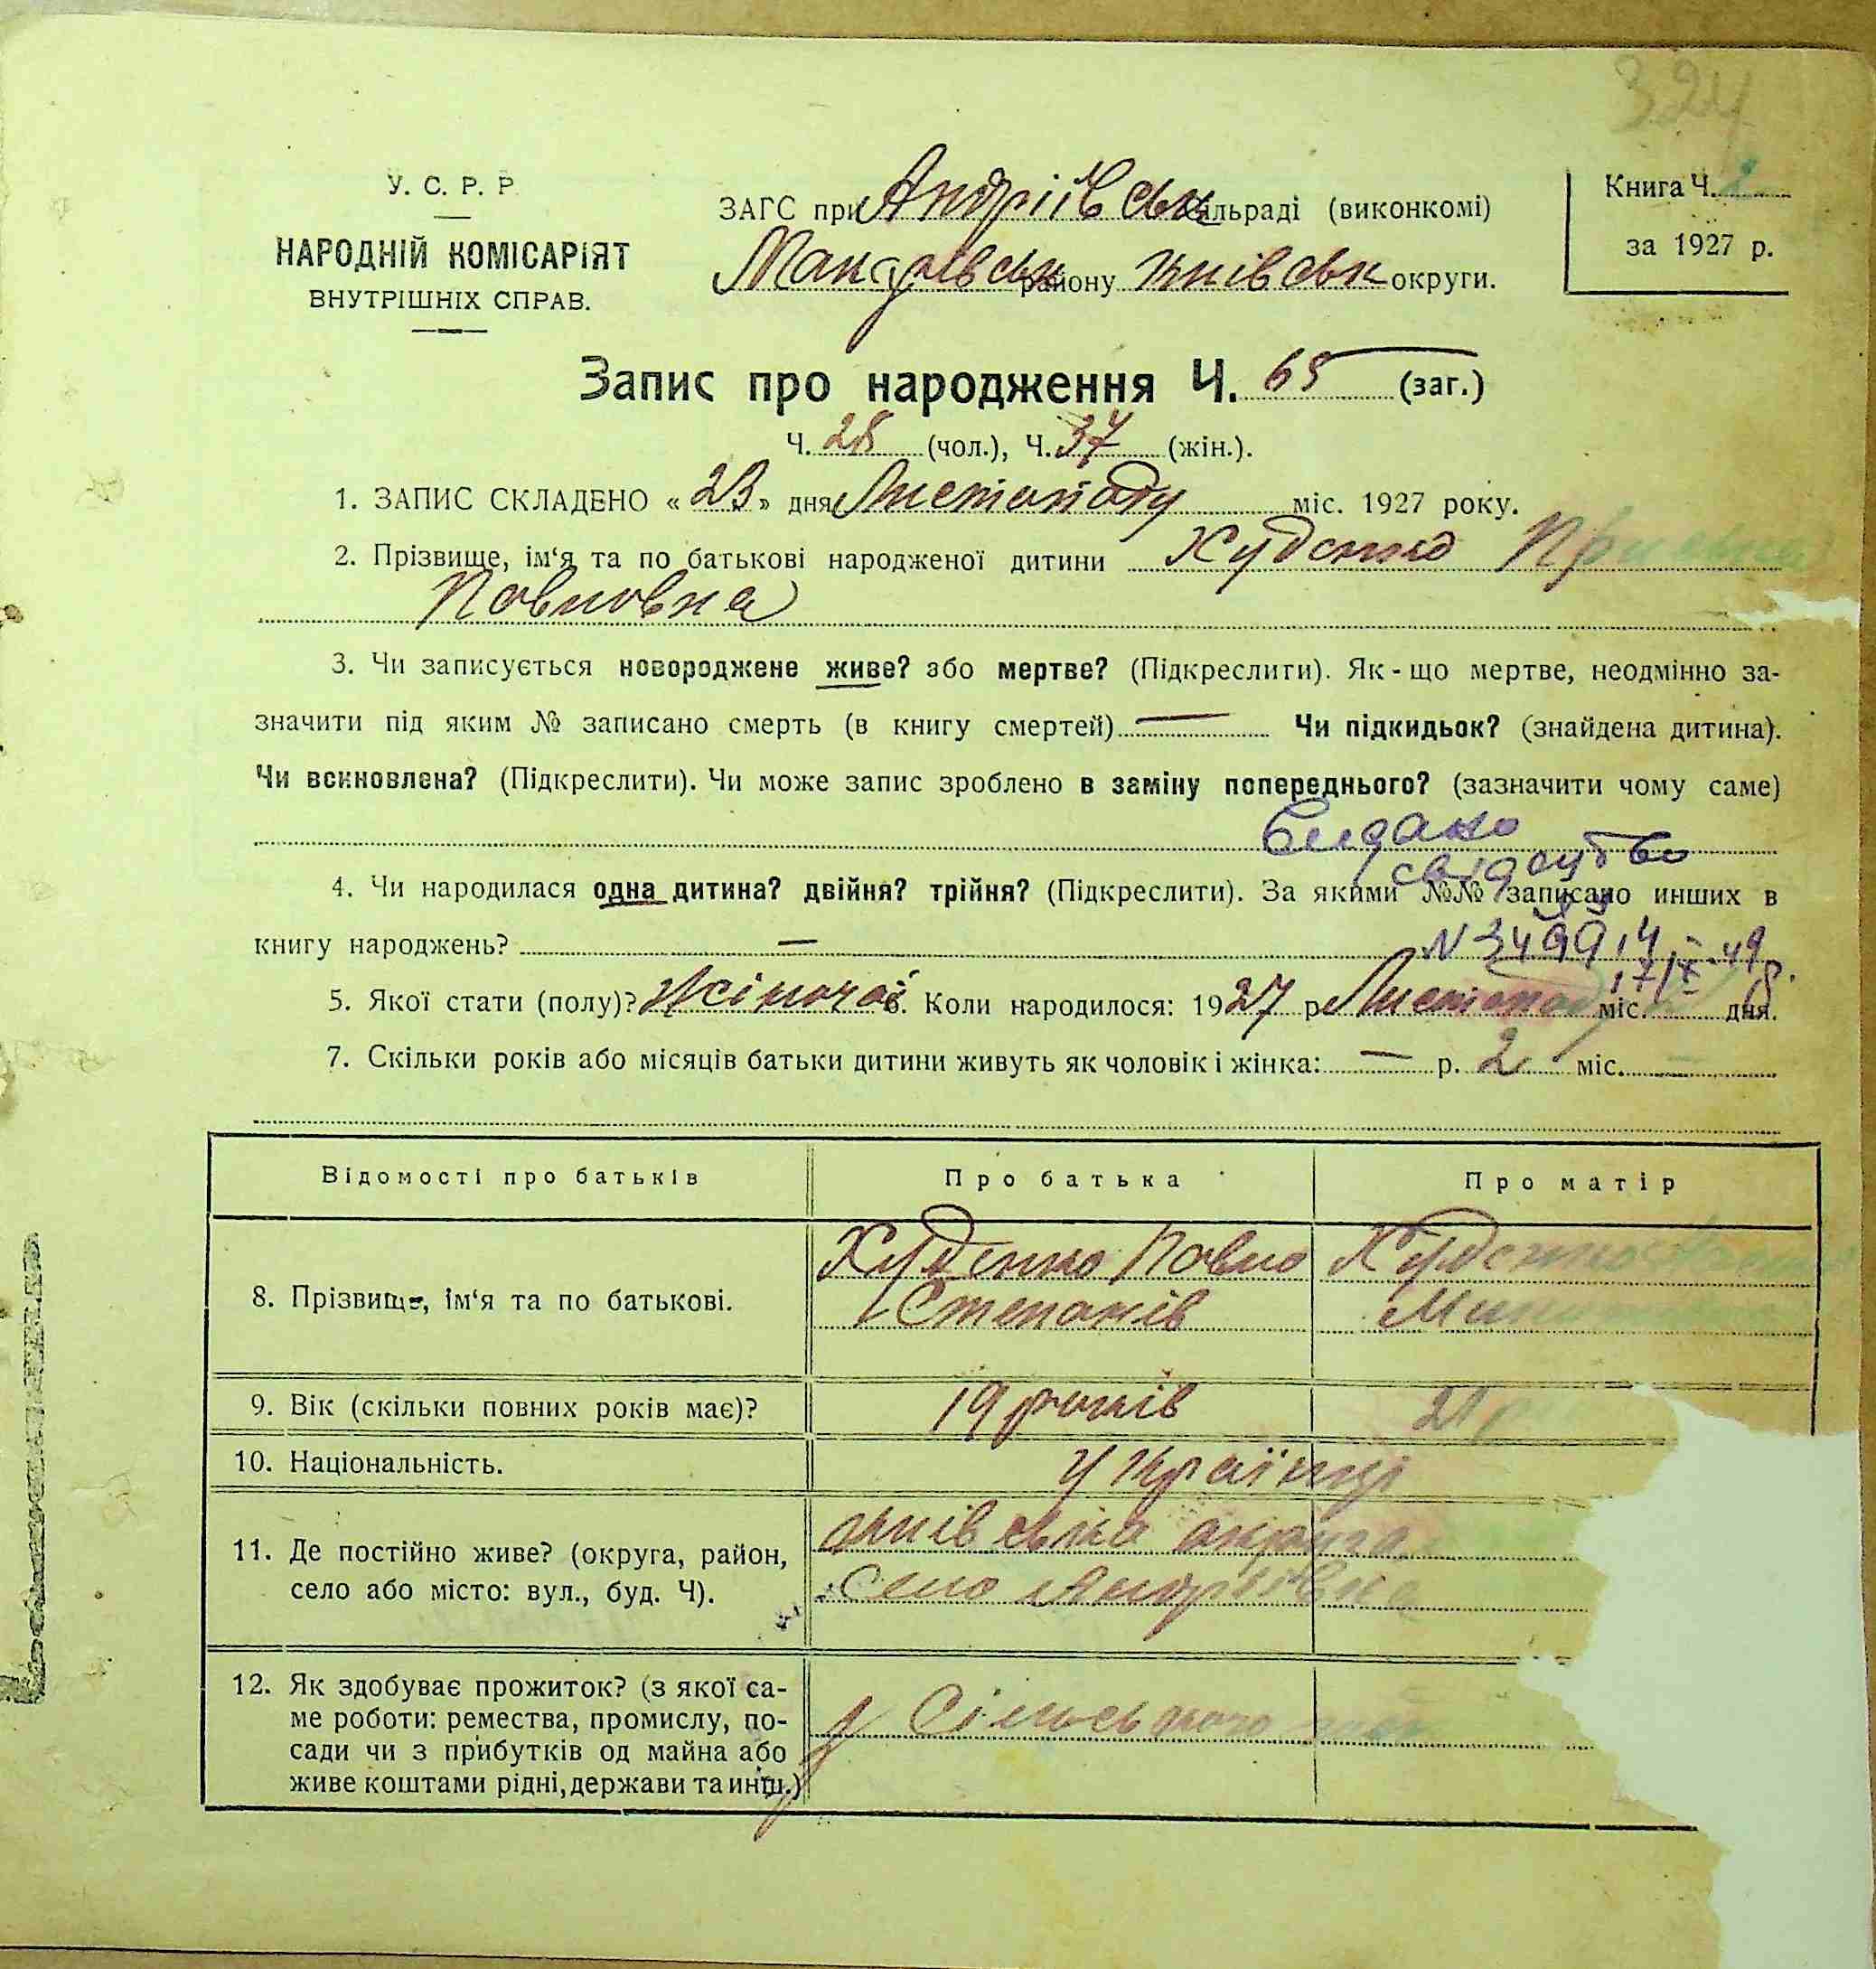 324
У. С. Р. Р.
НАРОДНІЙ КОМІСАРІЯТ
ВНУТРІШНІХ СПРАВ.
ЗАГС при Андріївськ сільраді (виконкомі)
Макарівськ району Київськ округи.
Книга Ч.
за 1927 р.
Запис про народження Ч. 65 (заг.)
Ч. 28 (чол.), Ч. 37 (жін.).
1. ЗАПИС СКЛАДЕНО « 23 » дня Листопаду міс. 1927 року.
2. Прізвище, ім‘я та по батькові народженої дитини Худенко
Павловна
3. Чи записується новороджене живе? або мертве? (Підкреслити). Як-що мертве, неодмінно за-
значити під яким № записано смерть (в книгу смертей) — Чи підкидьок? (знайдена дитина).
Чи всиновлена? (Підкреслити). Чи може запис зроблено в заміну попереднього? (зазначити чому саме)
Видано
свідоцтво
4. Чи народилася одна дитина? двійня? трійня? (Підкреслити). За якими №№ записано инших в
книгу народжень? —
5. Якої стати (полу)? Жіночої 6. Коли народилося: 1927 р. Листопаду міс. дня.
7. Скільки років або місяців батьки дитини живуть як чоловік і жінка: — р. 2 міс.
Відомості про батьків Про батька Про матір
8. Прізвище, ім‘я та по батькові.
Худенко Павло Худенко
Степанів
9. Вік (скільки повних років має)? 19 років 21 р
10. Національність. Українці
11. Де постійно живе? (округа, район,
село або місто: вул., буд. Ч).
Київська округа
Село Андріївка
12. Як здобуває прожиток? (з якої са-
ме роботи: ремества, промислу, по-
сади чи з прибутків од майна або
живе коштами рідні, держави та инш.)
Сільського